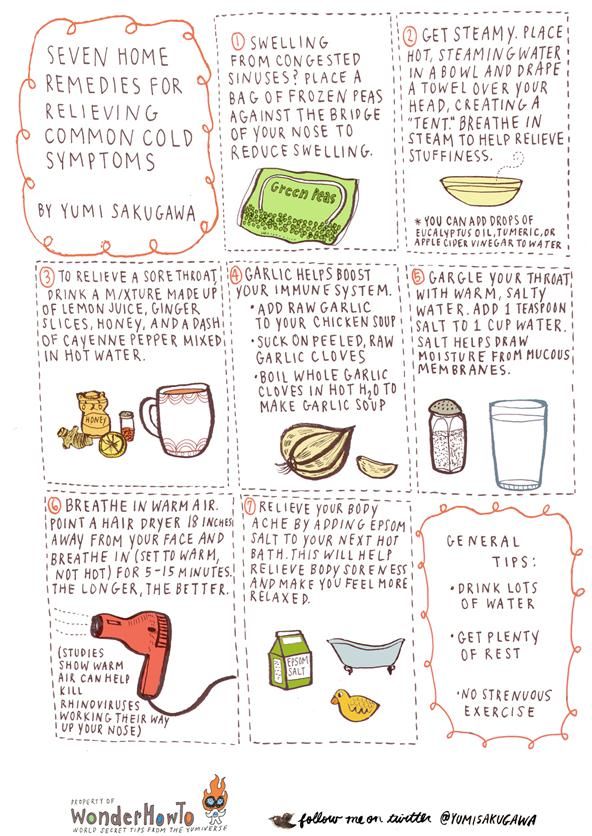 SEVEN HOME
REMEDIES FOR
RELIEVING
COMMON COLD
SYMPTOMS
BY YUMI SAKUGAWA
① SWELLING
FROM CONGESTED
SINUSES? PLACE A
BAG OF FROZEN PEAS
AGAINST THE BRIDGE
OF YOUR NOSE TO
REDUCE SWELLING.
Green Peas
② GET STEAMY. PLACE
HOT, STEAMING WATER
IN A BOWL AND DRAPE
A TOWEL OVER YOUR
HEAD, CREATING A
"TENT." BREATHE IN
STEAM TO HELP RELIEVE
STUFFINESS.
* YOU CAN ADD DROPS OF
EUCALYPTUS OIL, TUMERIC, OR
APPLE CIDER VINEGAR TO WATER
③ TO RELIEVE A SORE THROAT,
DRINK A MIXTURE MADE UP
OF LEMON JUICE, GINGER
SLICES, HONEY, AND A DASH
OF CAYENNE PEPPER MIXED
IN HOT WATER.
HONEY
④ GARLIC HELPS BOOST
YOUR IMMUNE SYSTEM.
• ADD RAW GARLIC
TO YOUR CHICKEN SOUP
• SUCK ON PEELED, RAW
GARLIC CLOVES
• BOIL WHOLE GARLIC
CLOVES IN HOT H₂O TO
MAKE GARLIC SOUP
⑤ GARGLE YOUR THROAT
WITH WARM, SALTY
WATER. ADD 1 TEASPOON
SALT TO 1 CUP WATER.
SALT HELPS DRAW
MOISTURE FROM MUCOUS
MEMBRANES.
⑥ BREATHE IN WARM AIR.
POINT A HAIR DRYER 18 INCHES
AWAY FROM YOUR FACE AND
BREATHE IN (SET TO WARM,
NOT HOT) FOR 5-15 MINUTES.
THE LONGER, THE BETTER.
(STUDIES
SHOW WARM
AIR CAN HELP
KILL
RHINOVIRUSES
WORKING THEIR WAY
UP YOUR NOSE)
⑦ RELIEVE YOUR BODY
ACHE BY ADDING EPSOM
SALT TO YOUR NEXT HOT
BATH. THIS WILL HELP
RELIEVE BODY SORENESS
AND MAKE YOU FEEL MORE
RELAXED.
EPSOM
SALT
GENERAL
TIPS:
• DRINK LOTS
OF WATER
• GET PLENTY
OF REST
• NO STRENUOUS
EXERCISE
PROPERTY OF
WonderHowTo
WORLD SECRET TIPS FROM THE YUMIVERSE
follow me on twitter @YUMISAKUGAWA